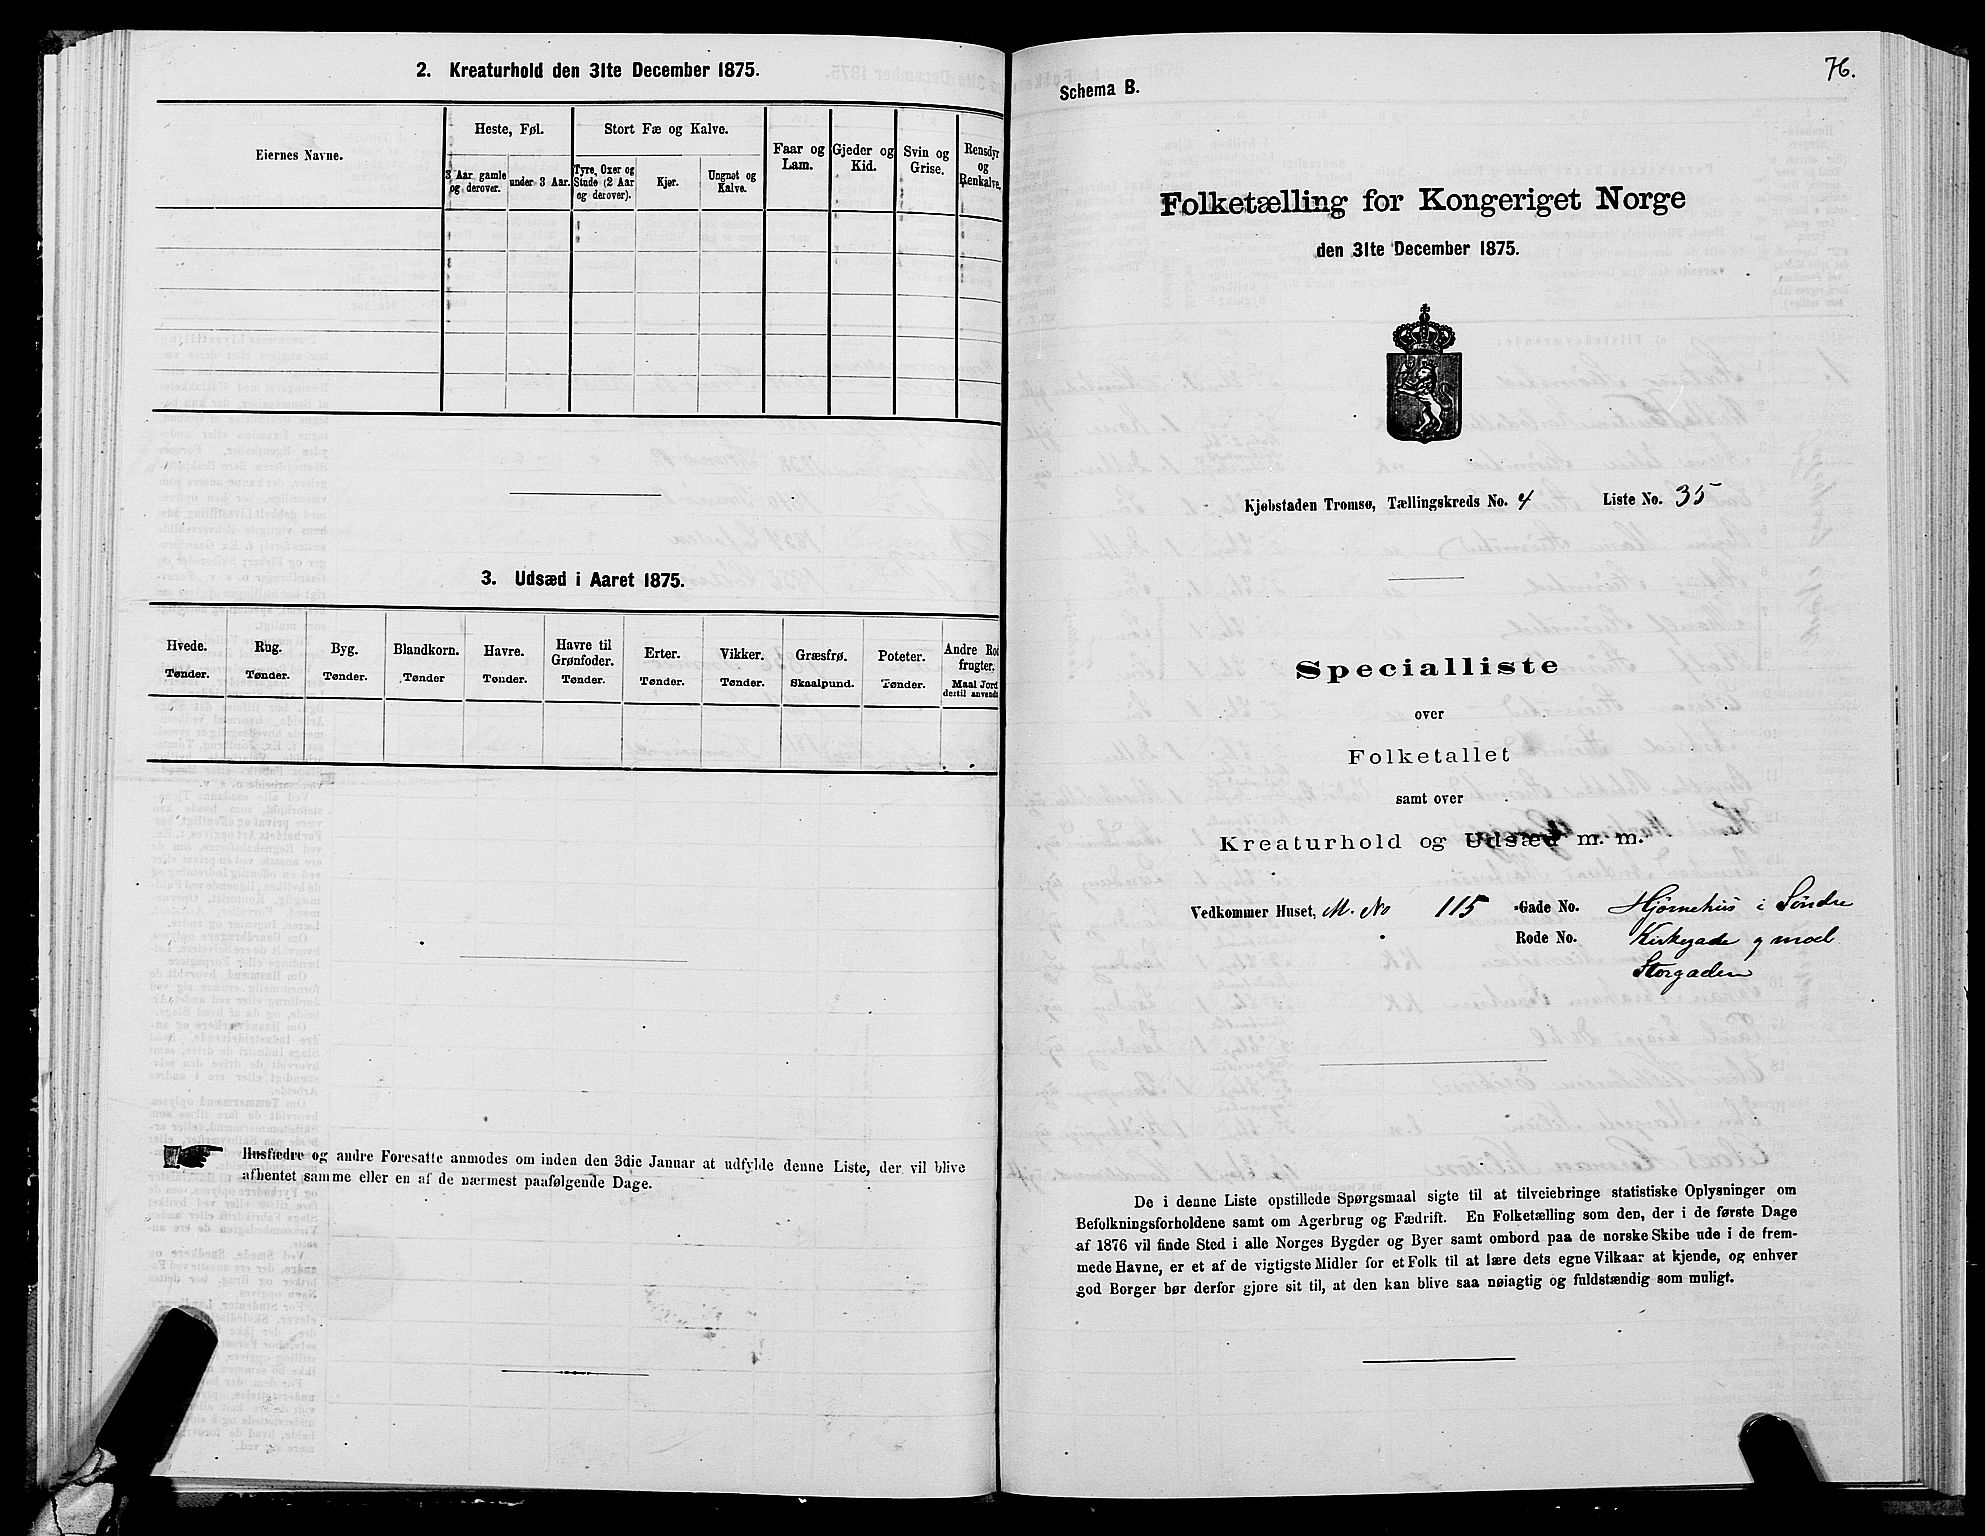 2. Kreaturhold den 31te December 1875.
Eiernes Navne.
Heste, Føl.
3 Aar gamle og derover.
under 3 Aar.
Stort Fæ og Kalve.
Tyre, Oxer og Stude (2 Aar og derover).
Kjør.
Ungnøt og Kalve.
Faar og Lam.
Gjeder og Kid.
Svin og Grise.
Rensdyr og Renkalve.
3. Udsæd i Aaret 1875.
Hvede. Tønder.
Rug. Tønder.
Byg. Tønder.
Blandkorn. Tønder
Havre. Tønder.
Havre til Grønfoder. Tønder.
Erter. Tønder.
Vikker. Tønder.
Græsfrø. Skaalpund.
Poteter. Tønder.
Andre Rodfrugter. Maal Jord dertil anvendt
Husfædre og andre Foresatte anmodes om inden den 3die Januar at udfylde denne Liste, der vil blive
afhentet samme eller en af de nærmest paafølgende Dage.
76.
Schema B.
Folketælling for Kongeriget Norge
den 31te December 1875.
Kjøbstaden Tromsø, Tællingskreds No. 4 Liste No. 35
Specialliste
over
Folketallet
samt over
Kreaturhold og Udsæd m. m.
Vedkommer Huset, M. No 115 Gade No. Hjørnehus i Søndre
Rode No. Kirkegade og mod
Storgaden
De i denne Liste opstillede Spørgsmaal sigte til at tilveiebringe statistiske Oplysninger om
Befolkningsforholdene samt om Agerbrug og Fædrift. En Folketælling som den, der i de første Dage
af 1876 vil finde Sted i alle Norges Bygder og Byer samt ombord paa de norske Skibe ude i de frem-
mede Havne, er et af de vigtigste Midler for et Folk til at lære dets egne Vilkaar at kjende, og enhver
god Borger bør derfor gjøre sit til, at den kan blive saa nøiagtig og fuldstændig som muligt.